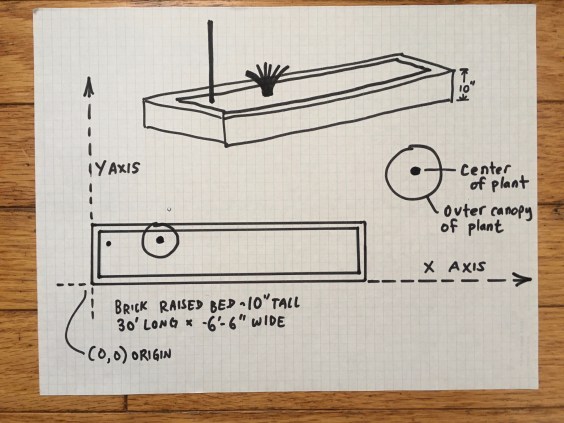 10"
Y AXIS
Center
of plant
Outer canopy
of plant
X AXIS
BRICK RAISED BED ~10" TALL
30' LONG × ~6'-6" WIDE
(0,0) ORIGIN